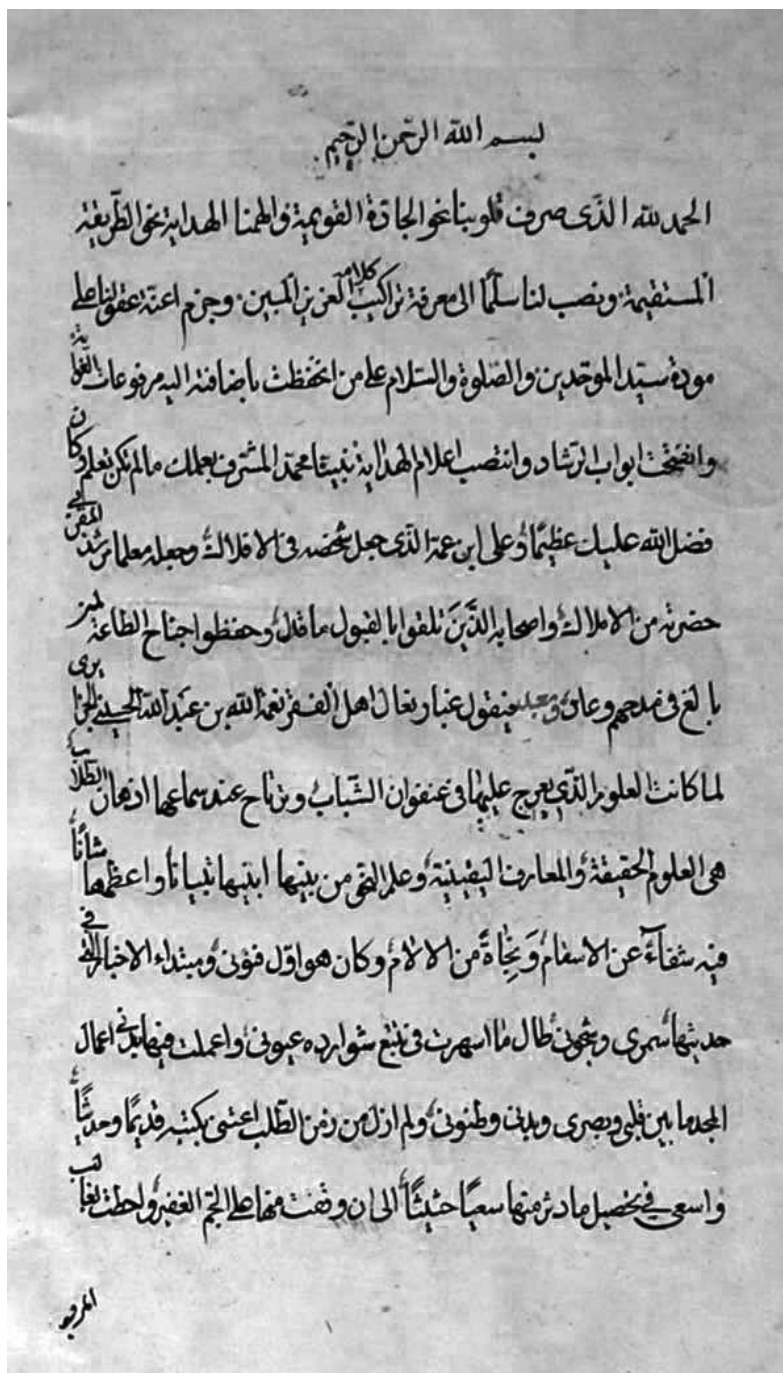 بسم الله الرحمن الرحيم
الحمد لله الذی صرف قلوبنا نحو الجادة القويمة والهمنا الهداية نحو الطريقة
المستقيمة ونصب لنا سلّماً الى معرفة تراكيب كلام العزيز المبين وجزم اعنة عقولنا على
مودة سيد الموحدين والصلوة والسلام على من انخفظت باضافته اليه مرفوعات الغواية
وانفتحت ابواب الرشاد وانتصب اعلام الهداية نبينا محمد المشرف بعملك مالم تكن تعلم وكان
فضل الله عليك عظيمًا وعلى ابن عمه الذی جعل شخصه فی الافلاك وجعله معلما
حضرته من الاملاك واصحابه الذَّينَ تلقوا بالقبول ما قدل وحفظوا جناح الطاعة لمن
بالغ فی مدحهم وعلى وبعد فيقول غبار نعال اهل الفقر نعمة الله بن عبد الله الحسينی الجزائری
لما كانت العلوم الذّی يعرج عليها فی عنفوان الشباب وترتاح عند سماعها اذهان الطلاب
هی العلوم الحقيقة والمعارف اليقينية وعلم النحو من بينها ابينها تبياناً واعظمها شأناً
فيه شفاءً عن الاسقام وَنجاةً من الالام وكان هو اوّل فنونی ومبتداء الاخبار التی فی
حديثها سمری وشجونی طال ما اسهرت فی تتبع شوارده عيونی واعملت فيها بدنی اعمال
المجد ما بين قلبی وبصری ويدی وظنونی ولم ازل من زمن الطلب اعتنی بكتبه قديمًا وحديثاً
واسعى فی تحصيل ما دثر منها سعيًا حثيثاً الى ان وقفت منها على الجم الغفير واحطت بغالب